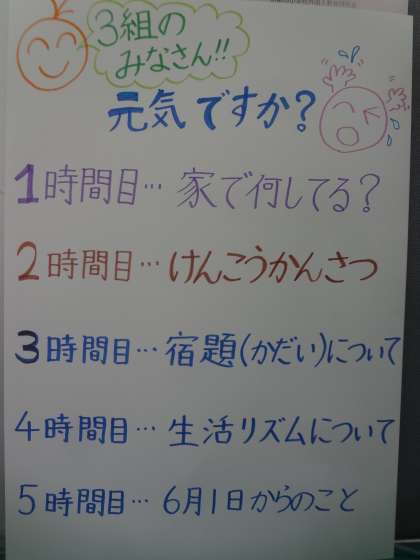 3組の
みなさん!!
元気ですか?
1時間目… 家で何してる?
2時間目… けんこうかんさつ
3時間目… 宿題(かだい)について
4時間目… 生活リズムについて
5時間目… 6月1日からのこと